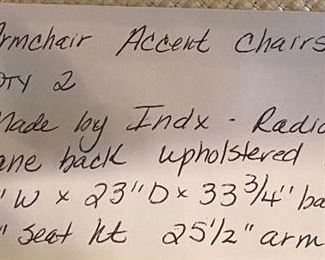 Armchair Accent Chairs
QTY 2
Made by Indx - Radio
ane back upholstered
"W x 23"D x 33 3/4" ba
" seat ht 25 1/2" arm